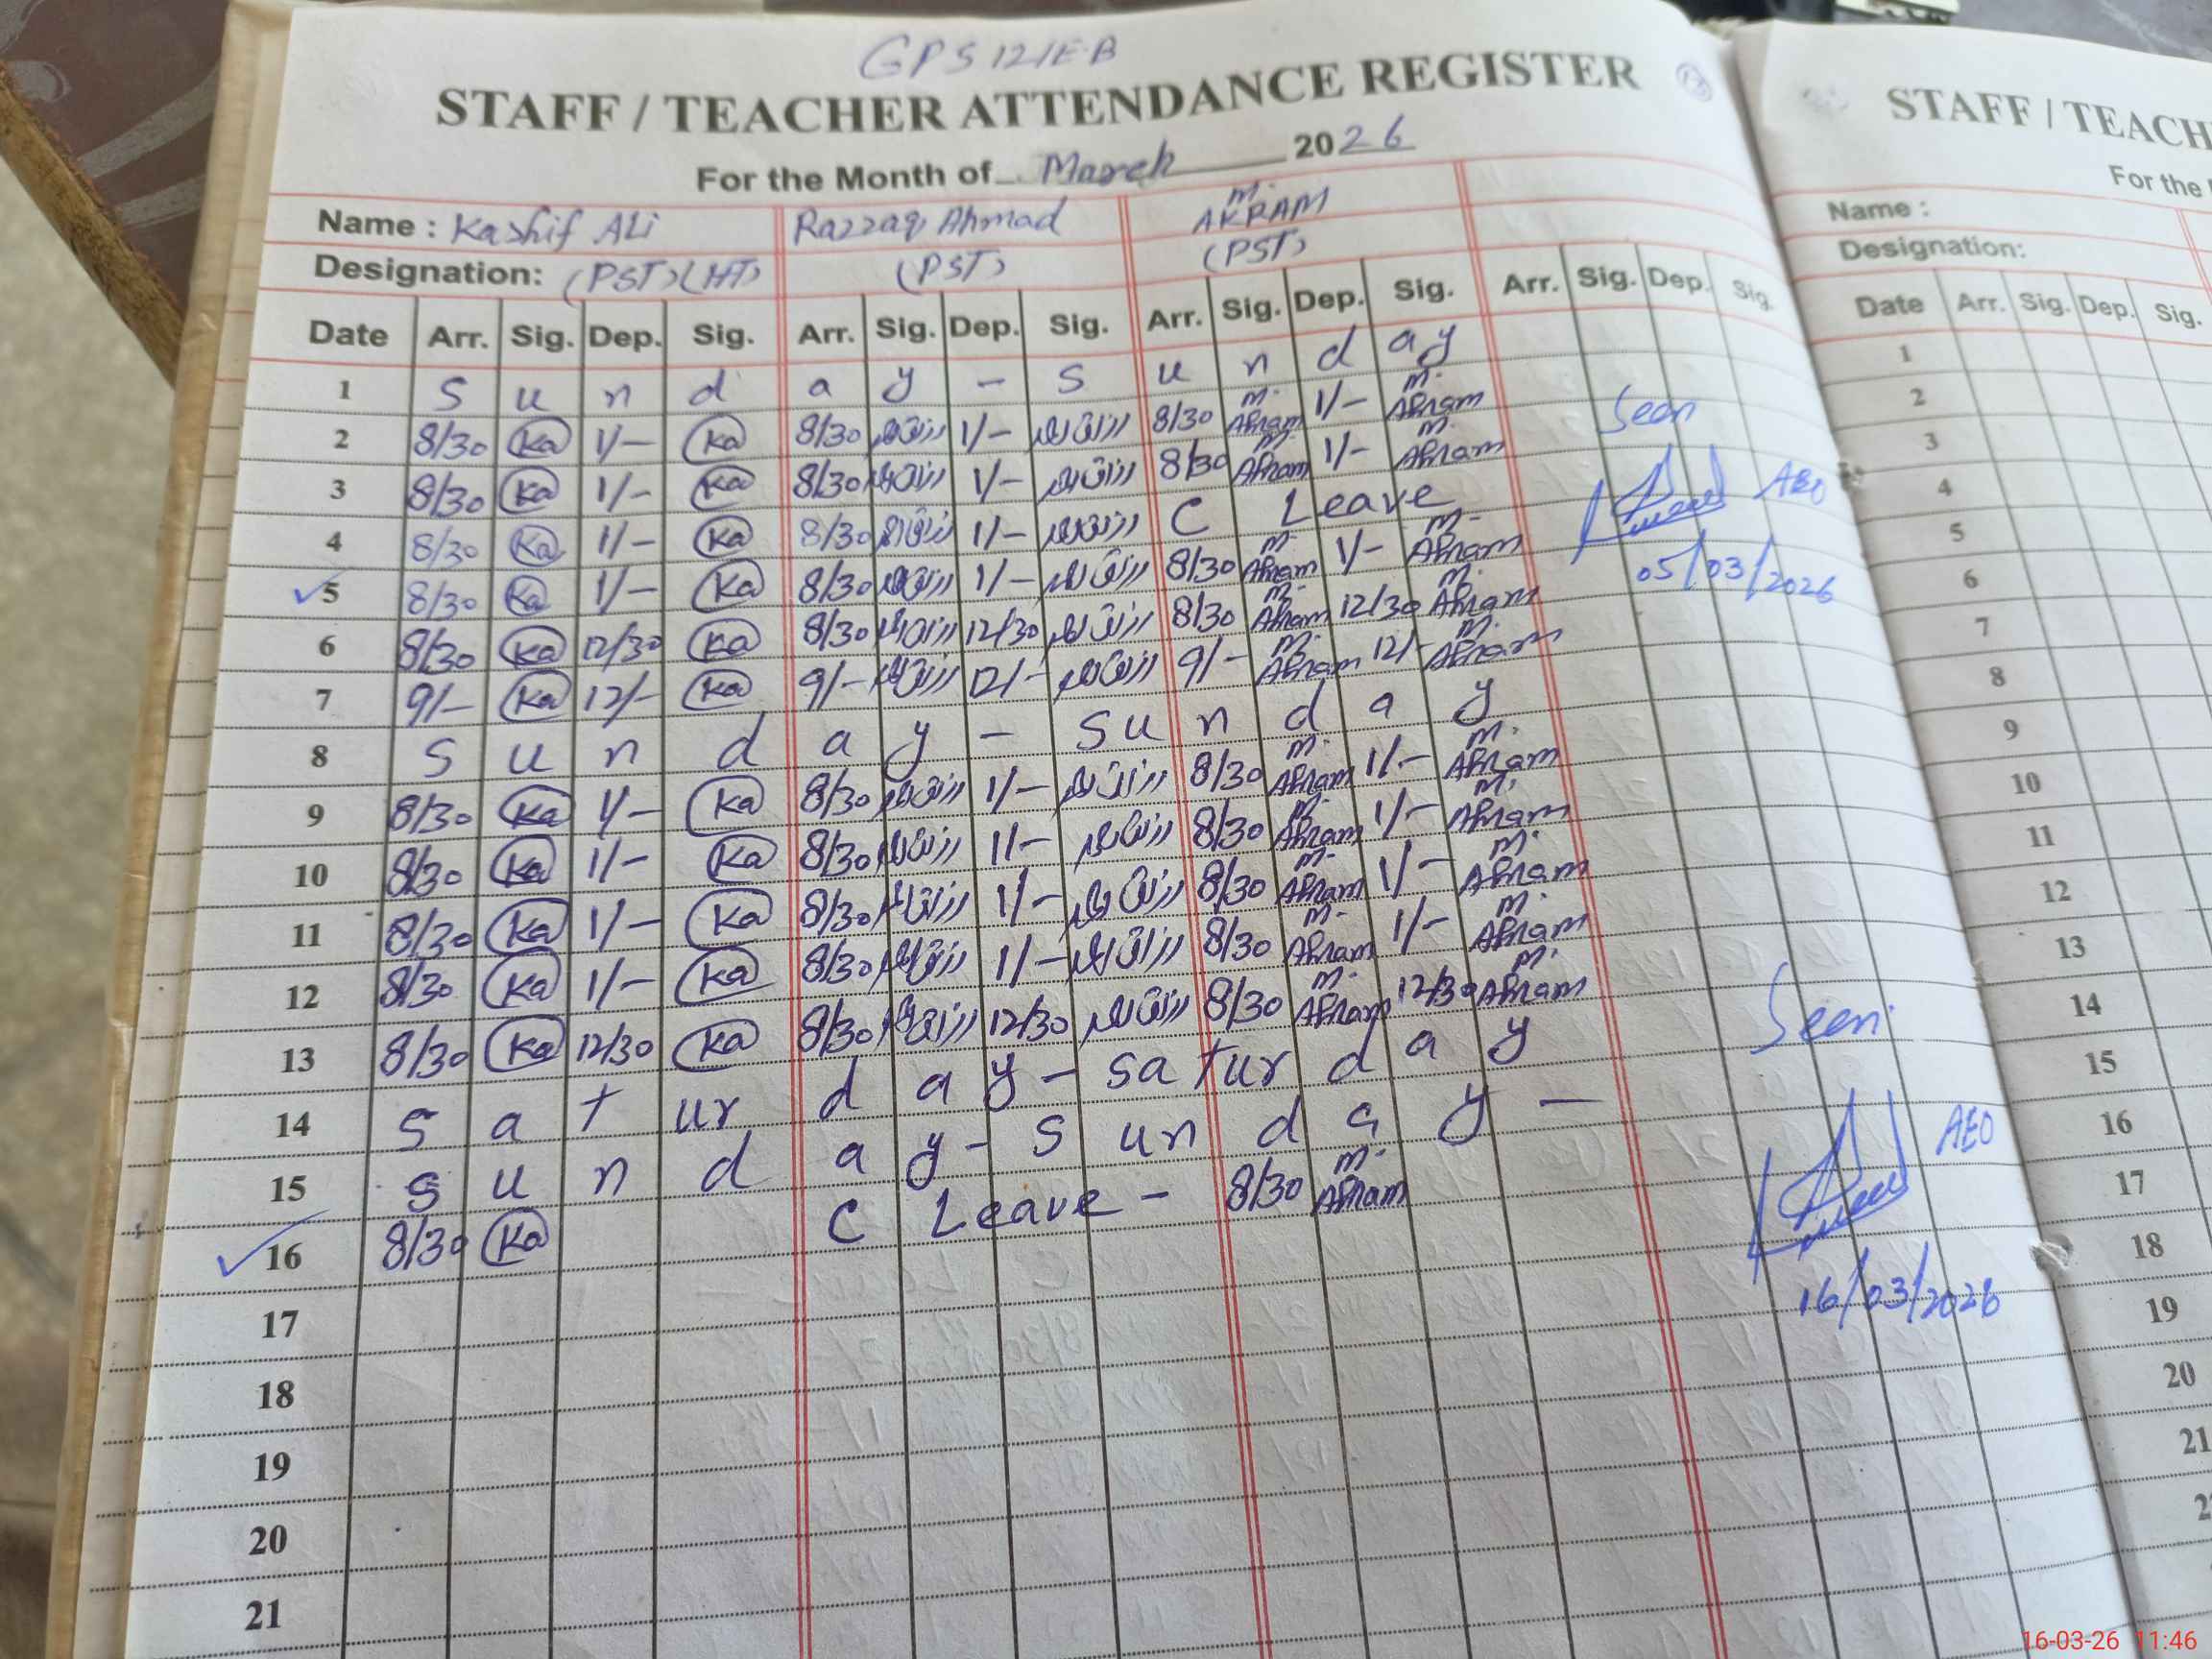 GPS 121E.B
STAFF / TEACHER ATTENDANCE REGISTER
For the Month of March 2026
Name : Kashif ALi Razzaq Ahmad M. AKRAM
Designation: (PST) (HT) (PST) (PST)
Date Arr. Sig. Dep. Sig. Arr. Sig. Dep. Sig. Arr. Sig. Dep. Sig. Arr. Sig. Dep. Sig.
1 S u n d a y - S u n d a y
2 8/30 Ka 1/- Ka 8/30 1/- 8/30 M. Akram 1/- M. Akram
3 8/30 Ka 1/- Ka 8/30 1/- 8/30 M. Akram 1/- M. Akram
4 8/30 Ka 1/- Ka 8/30 1/- C Leave
5 8/30 Ka 1/- Ka 8/30 1/- 8/30 M. Akram 1/- M. Akram
6 8/30 Ka 12/30 Ka 8/30 12/30 8/30 M. Akram 12/30 M. Akram
7 9/- Ka 12/- Ka 9/- 12/- 9/- M. Akram 12/- M. Akram
8 S u n d a y - S u n d a y
9 8/30 Ka 1/- Ka 8/30 1/- 8/30 M. Akram 1/- M. Akram
10 8/30 Ka 1/- Ka 8/30 1/- 8/30 M. Akram 1/- M. Akram
11 8/30 Ka 1/- Ka 8/30 1/- 8/30 M. Akram 1/- M. Akram
12 8/30 Ka 1/- Ka 8/30 1/- 8/30 M. Akram 1/- M. Akram
13 8/30 Ka 12/30 Ka 8/30 12/30 8/30 M. Akram 12/30 M. Akram
14 S a t ur d a y - sa tur d a y
15 S u n d a y - S un d a y -
16 8/30 Ka C Leave - 8/30 M. Akram
17
18
19
20
21
Seen
AEO
05/03/2026
Seen
AEO
16/03/2026
STAFF / TEACH
For the
Name :
Designation:
Date Arr. Sig. Dep. Sig.
1
2
3
4
5
6
7
8
9
10
11
12
13
14
15
16
17
18
19
20
21
16-03-26 11:46